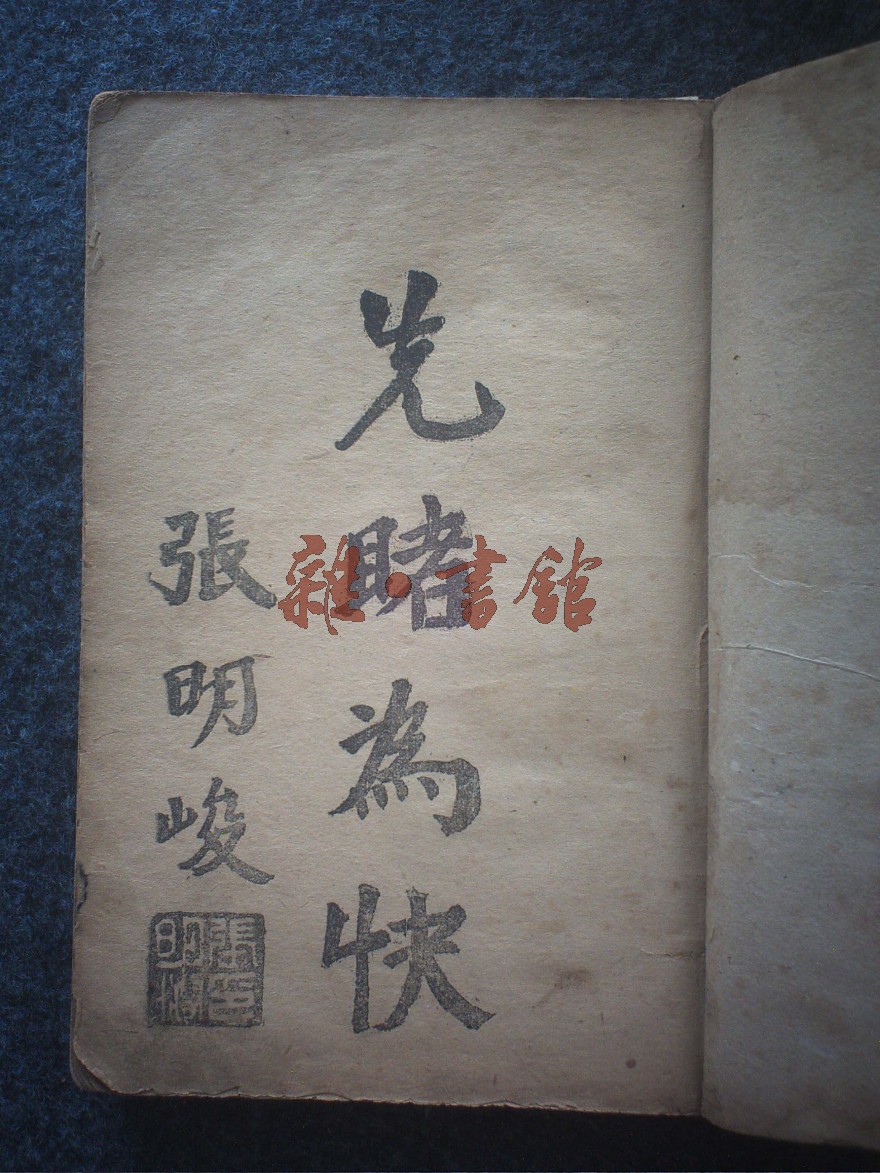 先睹為快
張明峻
雜·書館